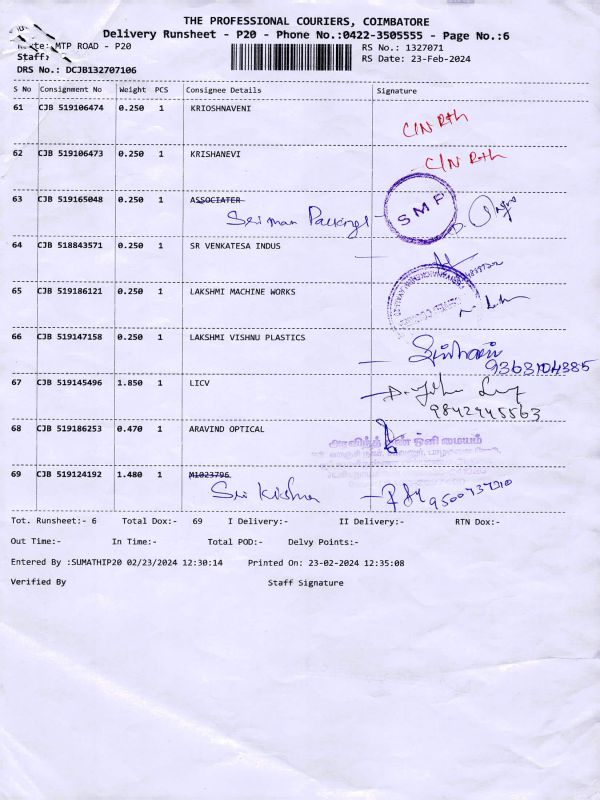 THE PROFESSIONAL COURIERS, COIMBATORE
Delivery Runsheet - P20 - Phone No.:0422-3505555 - Page No.:6
MTP ROAD - P20
RS No.: 1327071
Staff:
RS Date: 23-Feb-2024
DRS No.: DCJB132707106
S No Consignment No Weight PCS Consignee Details Signature
61 CJB 519106474 0.250 1 KRIOSHNAVENI
C/N Rth
62 CJB 519106473 0.250 1 KRISHANEVI
C/N Rth
63 CJB 519165048 0.250 1 ASSOCIATER
SMP
64 CJB 518843571 0.250 1 SR VENKATESA INDUS
65 CJB 519186121 0.250 1 LAKSHMI MACHINE WORKS
66 CJB 519147158 0.250 1 LAKSHMI VISHNU PLASTICS
9363104385
67 CJB 519145496 1.850 1 LICV
9842945563
68 CJB 519186253 0.470 1 ARAVIND OPTICAL
69 CJB 519124192 1.480 1 M1023796
Sri Krishna
9500737210
Tot. Runsheet:- 6 Total Dox:- 69 I Delivery:- II Delivery:- RTN Dox:-
Out Time:- In Time:- Total POD:- Delvy Points:-
Entered By :SUMATHIP20 02/23/2024 12:30:14 Printed On: 23-02-2024 12:35:08
Verified By Staff Signature